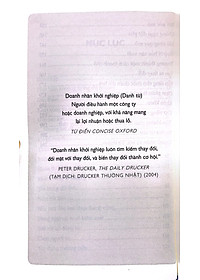 Doanh nhân khởi nghiệp (Danh từ)
Người điều hành một công ty
hoặc doanh nghiệp, với khả năng mang
lại lợi nhuận hoặc thua lỗ.
TỪ ĐIỂN CONCISE OXFORD
"Doanh nhân khởi nghiệp luôn tìm kiếm thay đổi,
đối mặt với thay đổi, và biến thay đổi thành cơ hội."
PETER DRUCKER, THE DAILY DRUCKER
(TẠM DỊCH: DRUCKER THƯỜNG NHẬT) (2004)